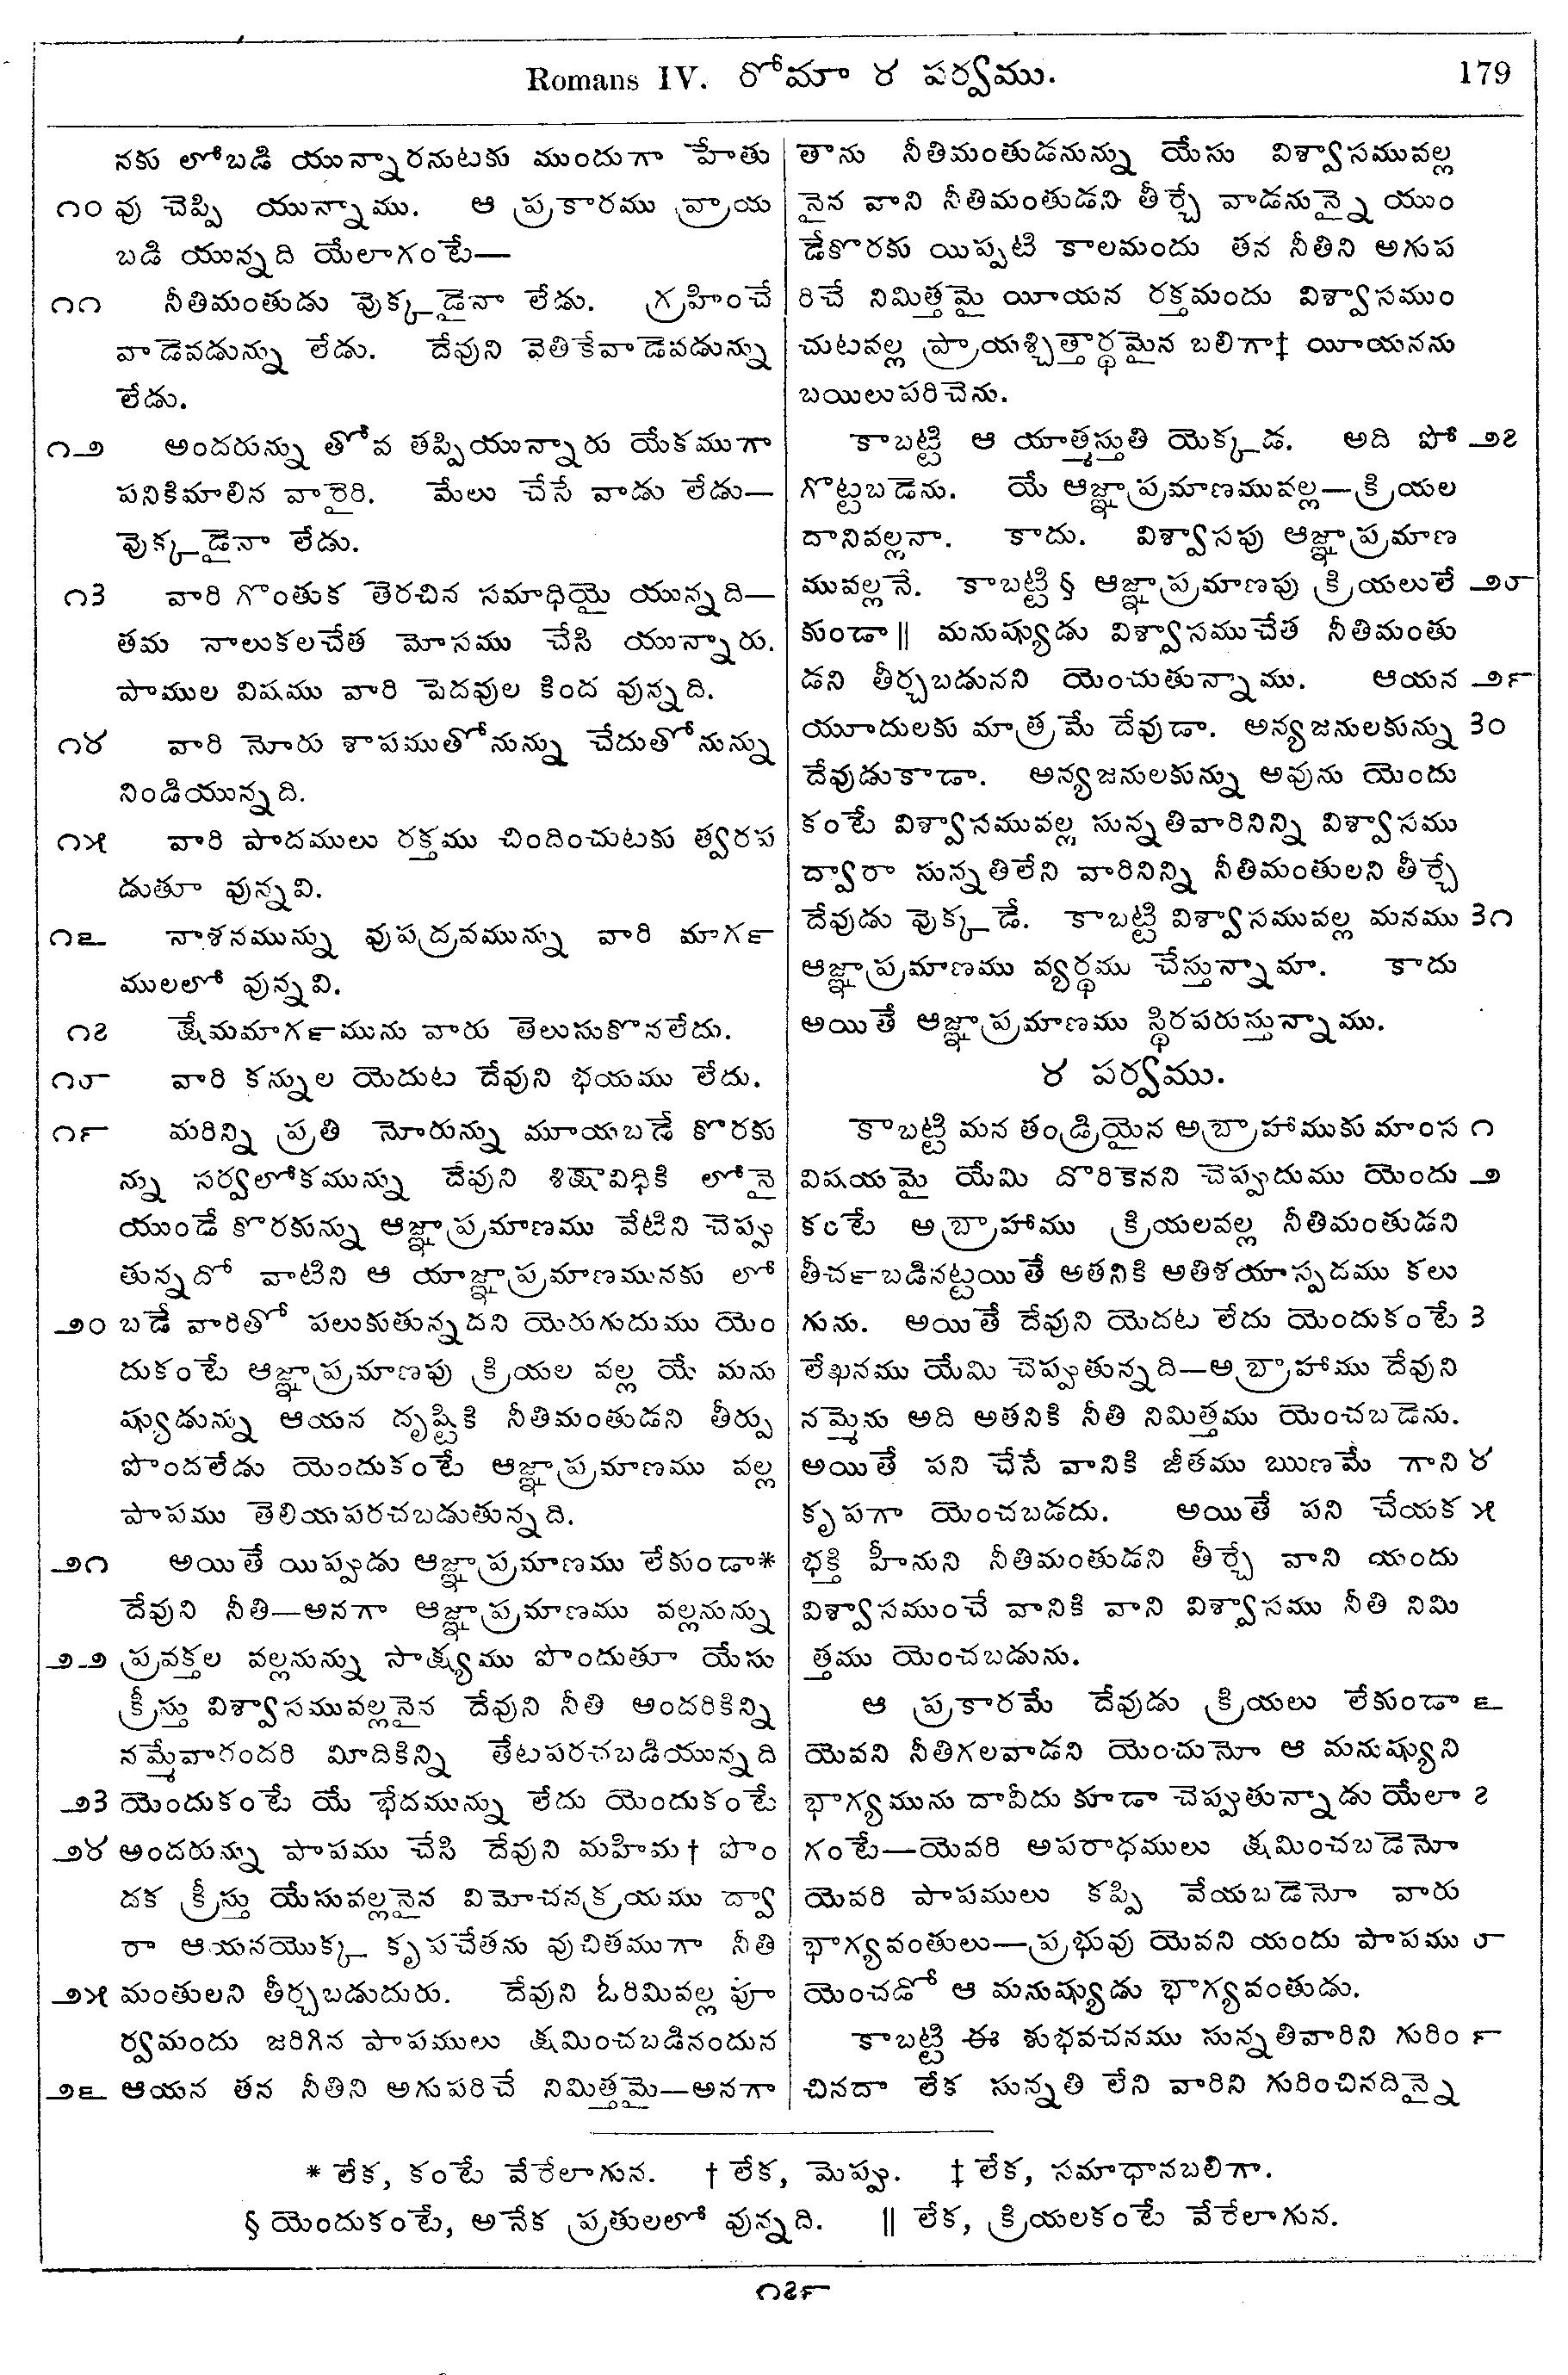 Romans IV. రోమా ౪ పర్వము. 179
నకు లోబడి యున్నారనుటకు ముందుగా హేతు
౧౦ వు చెప్పి యున్నాము. ఆ ప్రకారము వ్రాయ
బడి యున్నది యేలాగంటే—
౧౧ నీతిమంతుడు వొక్కడైనా లేడు. గ్రహించే
వాడెవడున్ను లేడు. దేవుని వెతికేవాడెవడున్ను
లేడు.
౧౨ అందరున్ను తోవ తప్పియున్నారు యేకముగా
పనికిమాలిన వారైరి. మేలు చేసే వాడు లేడు—
వొక్కడైనా లేడు.
౧౩ వారి గొంతుక తెరచిన సమాధియై యున్నది—
తమ నాలుకలచేత మోసము చేసి యున్నారు.
పాముల విషము వారి పెదవుల కింద వున్నది.
౧౪ వారి నోరు శాపముతోనున్ను చేదుతోనున్ను
నిండియున్నది.
౧౫ వారి పాదములు రక్తము చిందించుటకు త్వరప
డుతూ వున్నవి.
౧౬ నాశనమున్ను వుపద్రవమున్ను వారి మార్గ
ములలో వున్నవి.
౧౭ క్షేమమార్గమును వారు తెలుసుకొనలేదు.
౧౮ వారి కన్నుల యెదుట దేవుని భయము లేదు.
౧౯ మరిన్ని ప్రతి నోరున్ను మూయబడే కొరకు
న్ను సర్వలోకమున్ను దేవుని శిక్షావిధికి లోనై
యుండే కొరకున్ను ఆజ్ఞాప్రమాణము వేటిని చెప్పు
తున్నదో వాటిని ఆ యాజ్ఞాప్రమాణమునకు లో
౨౦ బడే వారితో పలుకుతున్నదని యెరుగుదుము యెం
దుకంటే ఆజ్ఞాప్రమాణపు క్రియల వల్ల యే మను
ష్యుడున్ను ఆయన దృష్టికి నీతిమంతుడని తీర్పు
పొందలేడు యెందుకంటే ఆజ్ఞాప్రమాణము వల్ల
పాపము తెలియపరచబడుతున్నది.
౨౧ అయితే యిప్పుడు ఆజ్ఞాప్రమాణము లేకుండా*
దేవుని నీతి—అనగా ఆజ్ఞాప్రమాణము వల్లనున్ను
౨౨ ప్రవక్తల వల్లనున్ను సాక్ష్యము పొందుతూ యేసు
క్రీస్తు విశ్వాసమువల్లనైన దేవుని నీతి అందరికిన్ని
నమ్మేవారందరి మీదికిన్ని తేటపరచబడియున్నది
౨౩ యెందుకంటే యే భేదమున్ను లేదు యెందుకంటే
౨౪ అందరున్ను పాపము చేసి దేవుని మహిమ† పొం
దక క్రీస్తు యేసువల్లనైన విమోచనక్రయము ద్వా
రా ఆయనయొక్క కృపచేతను వుచితముగా నీతి
౨౫ మంతులని తీర్చబడుదురు. దేవుని ఓరిమివల్ల పూ
ర్వమందు జరిగిన పాపములు క్షమించబడినందున
౨౬ ఆయన తన నీతిని అగుపరిచే నిమిత్తమై—అనగా
తాను నీతిమంతుడనున్ను యేసు విశ్వాసమువల్ల
నైన వాని నీతిమంతుడని తీర్చే వాడనున్నై యుం
డేకొరకు యిప్పటి కాలమందు తన నీతిని అగుప
రిచే నిమిత్తమై యీయన రక్తమందు విశ్వాసముం
చుటవల్ల ప్రాయశ్చిత్తార్థమైన బలిగా‡ యీయనను
బయిలుపరిచెను.
కాబట్టి ఆ యాత్మస్తుతి యెక్కడ. అది పో ౨౭
గొట్టబడెను. యే ఆజ్ఞాప్రమాణమువల్ల—క్రియల
దానివల్లనా. కాదు. విశ్వాసపు ఆజ్ఞాప్రమాణ
మువల్లనే. కాబట్టి§ ఆజ్ఞాప్రమాణపు క్రియలులే ౨౮
కుండా‖ మనుష్యుడు విశ్వాసముచేత నీతిమంతు
డని తీర్చబడునని యెంచుతున్నాము. ఆయన ౨౯
యూదులకు మాత్రమే దేవుడా. అన్యజనులకున్ను ౩౦
దేవుడుకాడా. అన్యజనులకున్ను అవును యెందు
కంటే విశ్వాసమువల్ల సున్నతివారినిన్ని విశ్వాసము
ద్వారా సున్నతిలేని వారినిన్ని నీతిమంతులని తీర్చే
దేవుడు వొక్కడే. కాబట్టి విశ్వాసమువల్ల మనము ౩౧
ఆజ్ఞాప్రమాణము వ్యర్థము చేస్తున్నామా. కాదు
అయితే ఆజ్ఞాప్రమాణము స్థిరపరుస్తున్నాము.
౪ పర్వము.
కాబట్టి మన తండ్రియైన అబ్రాహాముకు మాంస ౧
విషయమై యేమి దొరికెనని చెప్పుదుము యెందు ౨
కంటే అబ్రాహాము క్రియలవల్ల నీతిమంతుడని
తీర్చబడినట్టయితే అతనికి అతిశయాస్పదము కలు
గును. అయితే దేవుని యెదట లేదు యెందుకంటే ౩
లేఖనము యేమి చెప్పుతున్నది—అబ్రాహాము దేవుని
నమ్మెను అది అతనికి నీతి నిమిత్తము యెంచబడెను.
అయితే పని చేసే వానికి జీతము ఋణమే గాని ౪
కృపగా యెంచబడదు. అయితే పని చేయక ౫
భక్తి హీనుని నీతిమంతుడని తీర్చే వాని యందు
విశ్వాసముంచే వానికి వాని విశ్వాసము నీతి నిమి
త్తము యెంచబడును.
ఆ ప్రకారమే దేవుడు క్రియలు లేకుండా ౬
యెవని నీతిగలవాడని యెంచునో ఆ మనుష్యుని
భాగ్యమును దావీదు కూడా చెప్పుతున్నాడు యేలా ౭
గంటే—యెవరి అపరాధములు క్షమించబడెనో
యెవరి పాపములు కప్పి వేయబడెనో వారు
భాగ్యవంతులు—ప్రభువు యెవని యందు పాపము ౮
యెంచడో ఆ మనుష్యుడు భాగ్యవంతుడు.
కాబట్టి ఈ శుభవచనము సున్నతివారిని గురిం ౯
చినదా లేక సున్నతి లేని వారిని గురించినదిన్నై
* లేక, కంటే వేరేలాగున. † లేక, మెప్పు. ‡ లేక, సమాధానబలిగా.
§ యెందుకంటే, అనేక ప్రతులలో వున్నది. ‖ లేక, క్రియలకంటే వేరేలాగున.
౧౭౯